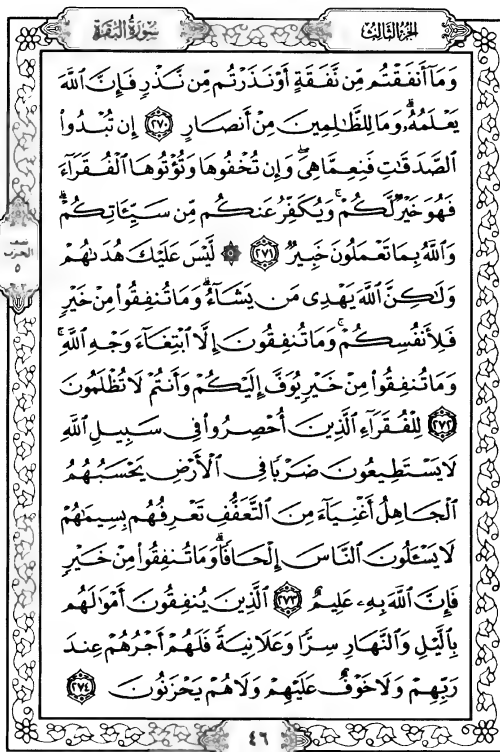 الجزء الثالث
سورة البقرة
وَمَآ أَنفَقْتُم مِّن نَّفَقَةٍ أَوْ نَذَرْتُم مِّن نَّذْرٍ فَإِنَّ ٱللَّهَ
يَعْلَمُهُۥۗ وَمَا لِلظَّٰلِمِينَ مِنْ أَنصَارٍ ﴿٢٧٠﴾ إِن تُبْدُوا۟
ٱلصَّدَقَٰتِ فَنِعِمَّا هِىَۖ وَإِن تُخْفُوهَا وَتُؤْتُوهَا ٱلْفُقَرَآءَ
فَهُوَ خَيْرٌ لَّكُمْۚ وَيُكَفِّرُ عَنكُم مِّن سَيِّـَٔاتِكُمْۗ
وَٱللَّهُ بِمَا تَعْمَلُونَ خَبِيرٌ ﴿٢٧١﴾ ۞ لَّيْسَ عَلَيْكَ هُدَىٰهُمْ
وَلَٰكِنَّ ٱللَّهَ يَهْدِى مَن يَشَآءُۗ وَمَا تُنفِقُوا۟ مِنْ خَيْرٍ
فَلِأَنفُسِكُمْۚ وَمَا تُنفِقُونَ إِلَّا ٱبْتِغَآءَ وَجْهِ ٱللَّهِۚ
وَمَا تُنفِقُوا۟ مِنْ خَيْرٍ يُوَفَّ إِلَيْكُمْ وَأَنتُمْ لَا تُظْلَمُونَ
﴿٢٧٢﴾ لِلْفُقَرَآءِ ٱلَّذِينَ أُحْصِرُوا۟ فِى سَبِيلِ ٱللَّهِ
لَا يَسْتَطِيعُونَ ضَرْبًا فِى ٱلْأَرْضِ يَحْسَبُهُمُ
ٱلْجَاهِلُ أَغْنِيَآءَ مِنَ ٱلتَّعَفُّفِ تَعْرِفُهُم بِسِيمَٰهُمْ
لَا يَسْـَٔلُونَ ٱلنَّاسَ إِلْحَافًاۗ وَمَا تُنفِقُوا۟ مِنْ خَيْرٍ
فَإِنَّ ٱللَّهَ بِهِۦ عَلِيمٌ ﴿٢٧٣﴾ ٱلَّذِينَ يُنفِقُونَ أَمْوَٰلَهُم
بِٱلَّيْلِ وَٱلنَّهَارِ سِرًّا وَعَلَانِيَةً فَلَهُمْ أَجْرُهُمْ عِندَ
رَبِّهِمْ وَلَا خَوْفٌ عَلَيْهِمْ وَلَا هُمْ يَحْزَنُونَ ﴿٢٧٤﴾
نصف
الحزب
٥
٤٦